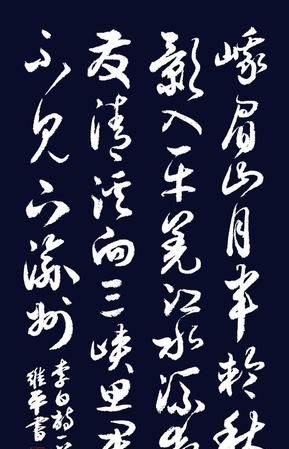 峨眉山月半輪秋
影入平羌江水流夜
发清溪向三峽思君
不見下渝州
李白詩一
平書